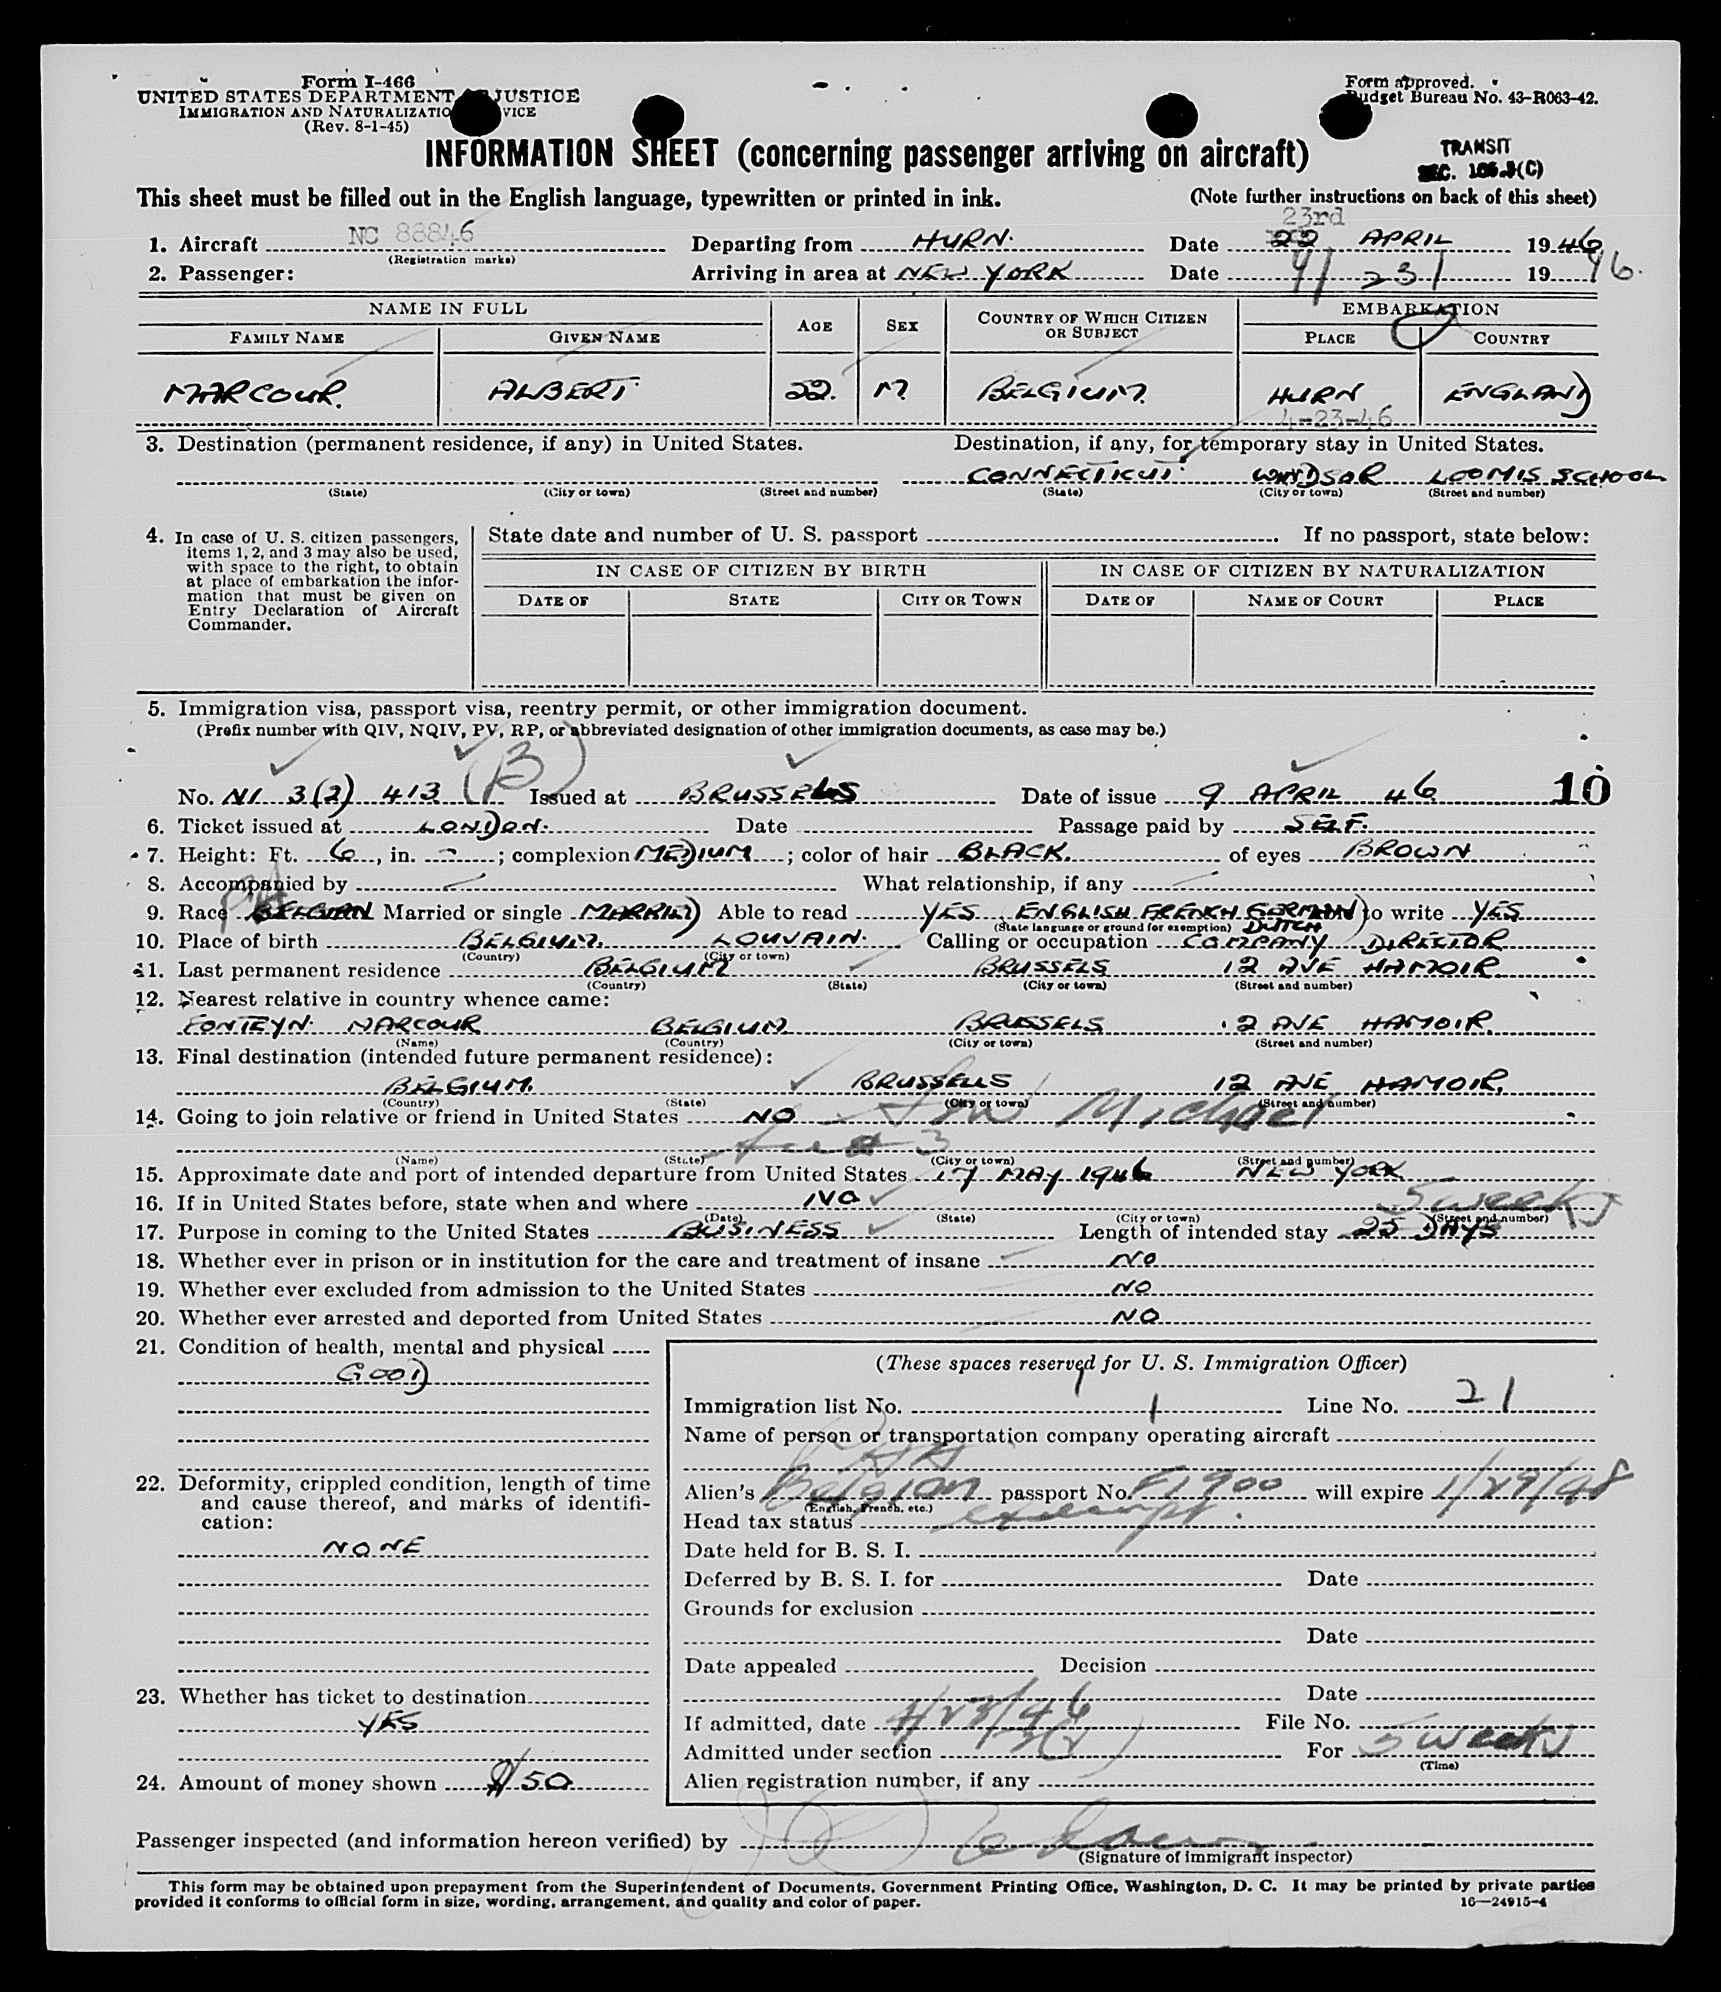 Form I-466
UNITED STATES DEPARTMENT JUSTICE
IMMIGRATION AND NATURALIZATIO VICE
(Rev. 8-1-45)
Form approved.
Budget Bureau No. 43-R063-42.
INFORMATION SHEET (concerning passenger arriving on aircraft)
TRANSIT
SEC.
This sheet must be filled out in the English language, typewritten or printed in ink. (Note further instructions on back of this sheet)
23rd
1. Aircraft NC 88846 Departing from HURN. Date 22 APRIL 1946
(Registration marks)
2. Passenger: Arriving in area at NEW YORK Date 4/23/ 1946.
NAME IN FULL AGE SEX COUNTRY OF WHICH CITIZEN OR SUBJECT EMBARKATION
FAMILY NAME GIVEN NAME PLACE COUNTRY
MARCOUR. ALBERT. 22. M. BELGIUM. HURN ENGLAND
4-23-46
3. Destination (permanent residence, if any) in United States. Destination, if any, for temporary stay in United States.
CONNECTICUT. WINDSOR LOOMIS SCHOOL
(State) (City or town) (Street and number) (State) (City or town) (Street and number)
4. In case of U. S. citizen passengers, items 1, 2, and 3 may also be used, with space to the right, to obtain at place of embarkation the information that must be given on Entry Declaration of Aircraft Commander.
State date and number of U. S. passport If no passport, state below:
IN CASE OF CITIZEN BY BIRTH IN CASE OF CITIZEN BY NATURALIZATION
DATE OF STATE CITY OR TOWN DATE OF NAME OF COURT PLACE
5. Immigration visa, passport visa, reentry permit, or other immigration document.
(Prefix number with QIV, NQIV, PV, RP, or abbreviated designation of other immigration documents, as case may be.)
No. NI 3(2) 413 (B) Issued at BRUSSELS Date of issue 9 APRIL 46 10
6. Ticket issued at LONDON. Date Passage paid by SELF.
7. Height: Ft. 6, in. -; complexion MEDIUM; color of hair BLACK. of eyes BROWN
8. Accompanied by What relationship, if any
9. Race BELGIAN Married or single MARRIED Able to read YES, ENGLISH FRENCH GERMAN to write YES
(State language or ground for exemption) DUTCH
10. Place of birth BELGIUM. LOUVAIN. Calling or occupation COMPANY DIRECTOR
(Country) (City or town)
11. Last permanent residence BELGIUM BRUSSELS 12 AVE HAMOIR.
(Country) (State) (City or town) (Street and number)
12. Nearest relative in country whence came:
FONTEYN. MARCOUR BELGIUM BRUSSELS 12 AVE HAMOIR.
(Name) (Country) (City or town) (Street and number)
13. Final destination (intended future permanent residence):
BELGIUM. BRUSSELS 12 AVE HAMOIR.
(Country) (State) (City or town) (Street and number)
14. Going to join relative or friend in United States NO Michael
3
(Name) (State) (City or town) (Street and number)
15. Approximate date and port of intended departure from United States 17 MAY 1946 NEW YORK
16. If in United States before, state when and where NO 5 weeks
(Date) (State) (City or town) (Street and number)
17. Purpose in coming to the United States BUSINESS Length of intended stay 25 DAYS
18. Whether ever in prison or in institution for the care and treatment of insane NO
19. Whether ever excluded from admission to the United States NO
20. Whether ever arrested and deported from United States NO
21. Condition of health, mental and physical
GOOD
22. Deformity, crippled condition, length of time and cause thereof, and marks of identification:
NONE
23. Whether has ticket to destination
YES
24. Amount of money shown $50
(These spaces reserved for U. S. Immigration Officer)
Immigration list No. 1 Line No. 21
Name of person or transportation company operating aircraft
Alien's Belgian passport No. F1900 will expire 1/29/48
(English, French, etc.)
Head tax status exempt.
Date held for B. S. I.
Deferred by B. S. I. for Date
Grounds for exclusion
Date
Date appealed Decision
Date
If admitted, date 4/23/46 File No.
Admitted under section 3(2) For 5 weeks
(Time)
Alien registration number, if any
Passenger inspected (and information hereon verified) by
(Signature of immigrant inspector)
This form may be obtained upon prepayment from the Superintendent of Documents, Government Printing Office, Washington, D. C. It may be printed by private parties
provided it conforms to official form in size, wording, arrangement, and quality and color of paper. 16—24915-4